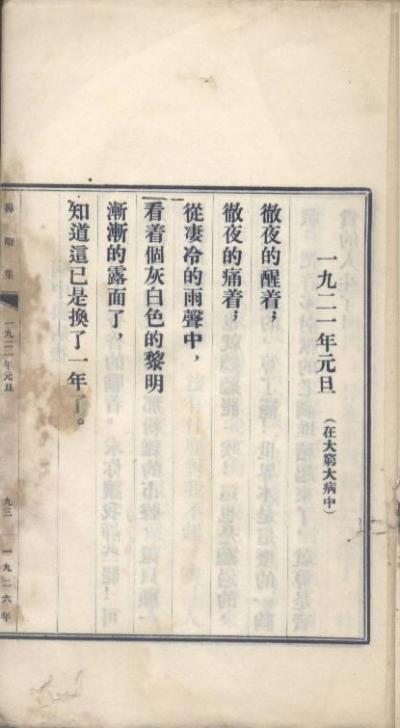 一九二一年元旦
(在大窮大病中)
徹夜的醒着;
徹夜的痛着;
從凄冷的雨聲中,
看着個灰白色的黎明
漸漸的露面了,
知道這已是換了一年了。
揚鞭集
一九二一年元旦
九三
一九二六年